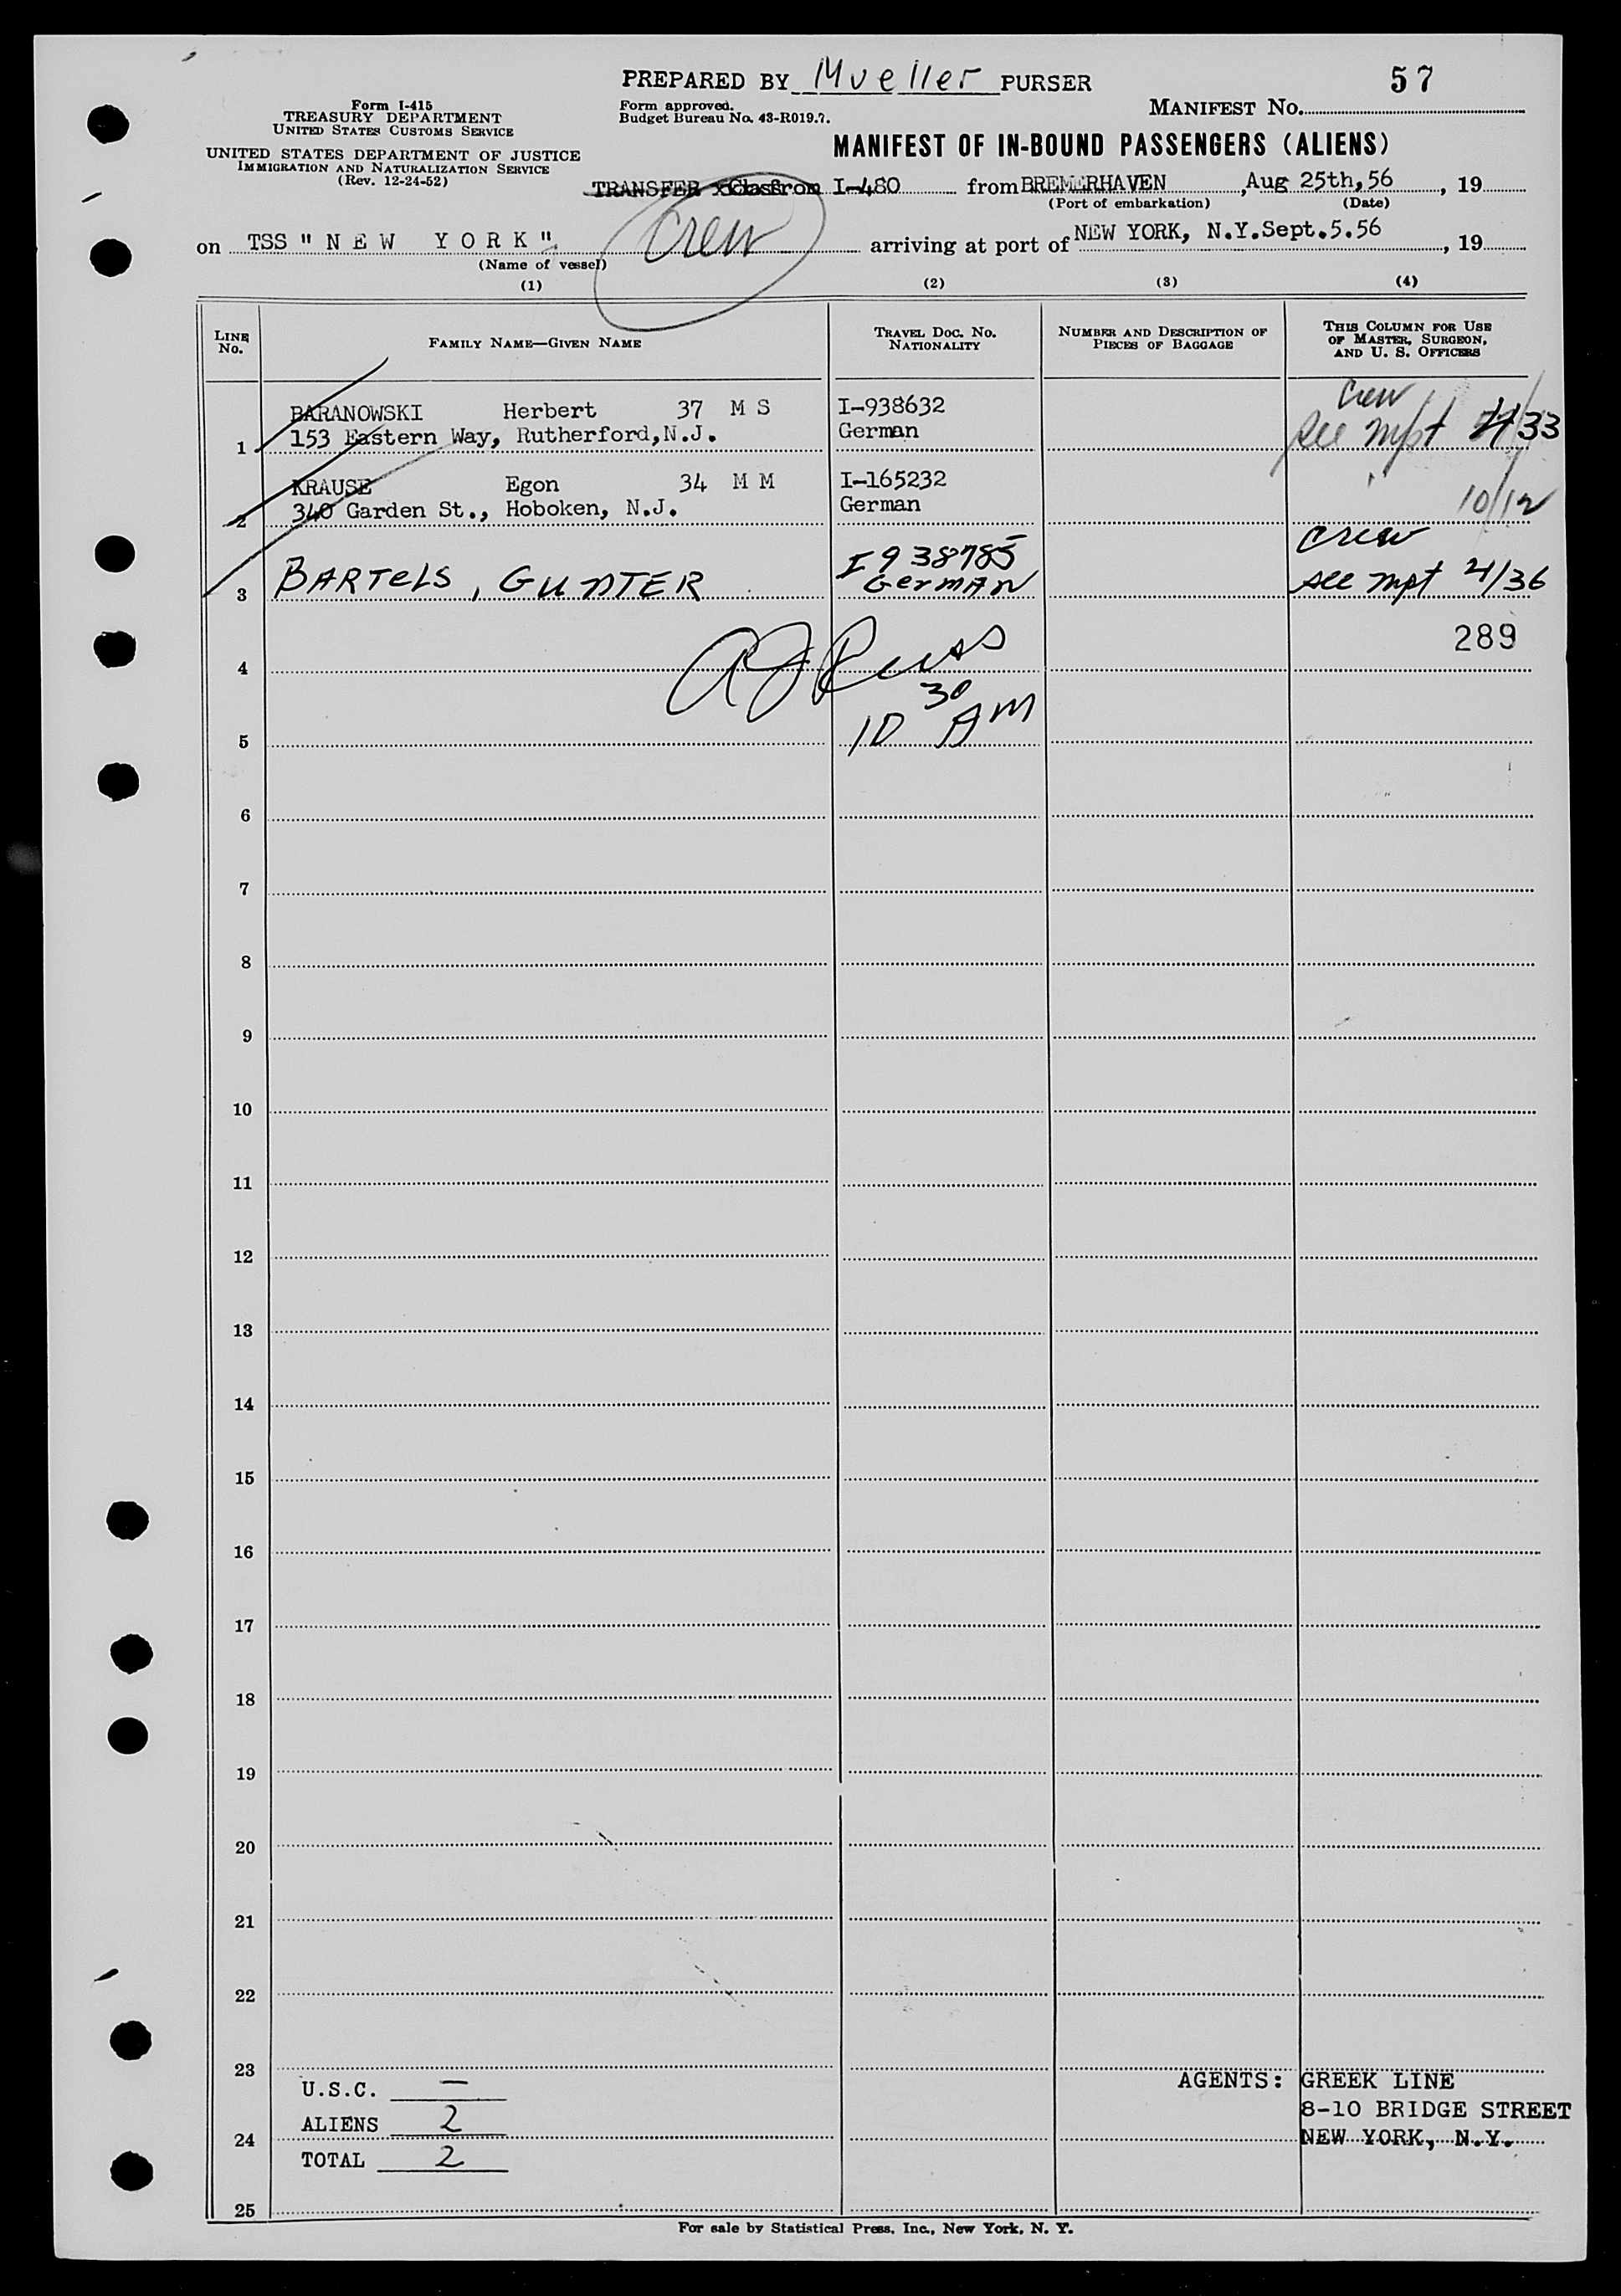 PREPARED BY Mueller PURSER
57
Form I-415
TREASURY DEPARTMENT
UNITED STATES CUSTOMS SERVICE
Form approved.
Budget Bureau No. 43-R019.7.
MANIFEST No.
UNITED STATES DEPARTMENT OF JUSTICE
IMMIGRATION AND NATURALIZATION SERVICE
(Rev. 12-24-52)
MANIFEST OF IN-BOUND PASSENGERS (ALIENS)
TRANSFER from I-480 from BREMERHAVEN, Aug 25th, 56, 19
(Port of embarkation) (Date)
on TSS "NEW YORK" crew arriving at port of NEW YORK, N.Y. Sept.5.56, 19
(Name of vessel)
(1) (2) (3) (4)
LINE No.
FAMILY NAME—GIVEN NAME
TRAVEL DOC. NO. NATIONALITY
NUMBER AND DESCRIPTION OF PIECES OF BAGGAGE
THIS COLUMN FOR USE OF MASTER, SURGEON, AND U. S. OFFICERS
BARANOWSKI Herbert 37 M S I-938632 crew
1 153 Eastern Way, Rutherford, N.J. German see mpt 33
KRAUSE Egon 34 M M I-165232 "
2 340 Garden St., Hoboken, N.J. German 10/12
crew
3 BARTELS, GUNTER I 938785 GERMAN see mpt 21/36
289
4
10 30 AM
5
6
7
8
9
10
11
12
13
14
15
16
17
18
19
20
21
22
23
U.S.C. —
AGENTS: GREEK LINE
8-10 BRIDGE STREET
ALIENS 2
24
NEW YORK, N.Y.
TOTAL 2
25
For sale by Statistical Press, Inc., New York, N. Y.